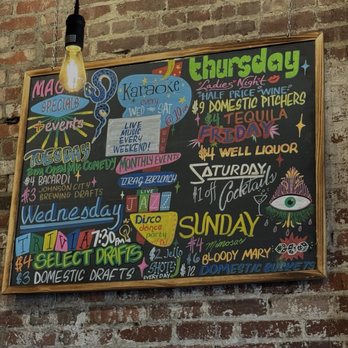 MAG
SPECIALS
& events
TUESDAY
8pm Open Mic COMEDY
$4 BACARDI
$3 JOHNSON CITY
BREWING DRAFTS
Wednesday
TRIVIA 7:30pm
$4 SELECT DRAFTS
$3 DOMESTIC DRAFTS
Karaoke
every
WED SAT
LIVE
MUSIC
EVERY
WEEKEND!
MONTHLY EVENTS
DRAG BRUNCH
LIVE
JAZZ
Disco
dance
party
$2 Jello
SHOTS
EVERYDAY
thursday
Ladies' Night
"HALF PRICE WINE"
$9 DOMESTIC PITCHERS
$4 TEQUILA
FRIDAY
$4 WELL LIQUOR
SATURDAY
$1 off Cocktails
SUNDAY
$4 mimosas
$6 BLOODY MARY
DOMESTIC BUCKETS